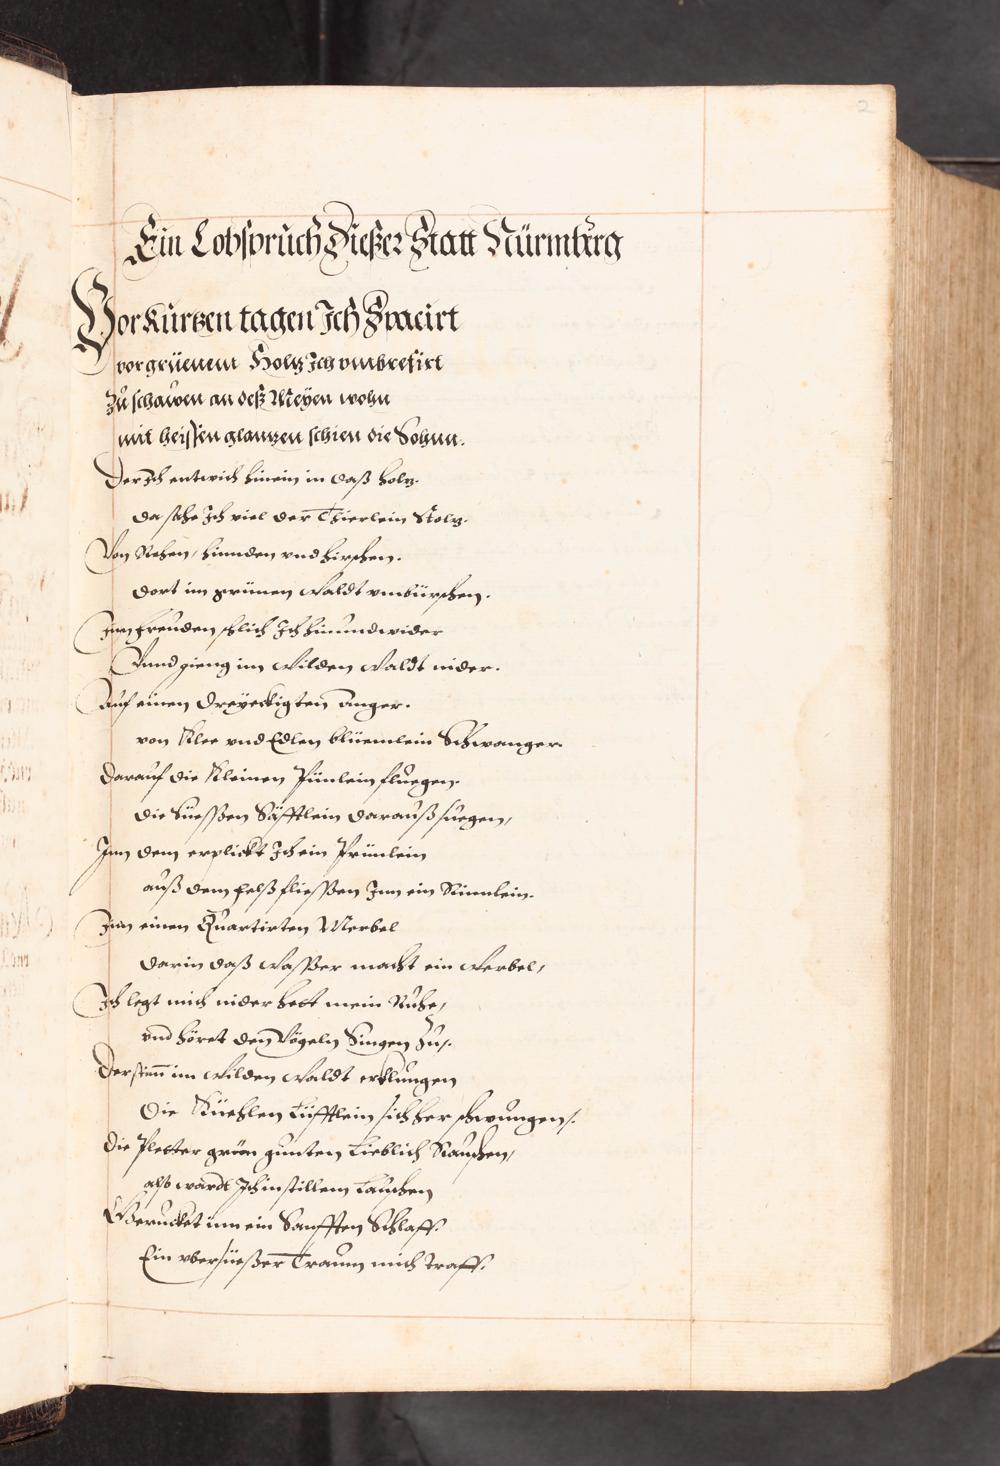 2
Ein Lobspruch Dießer Statt Nürmberg
Vor Kurtzen tagen Ich Spacirt
vor grüenem Holtz Ich vmbrefirt
Zu schawen an deß Meÿen wohn
mit heissen glantzen schien die Sohnn.
Der Ich entwich hinein in daß holtz.
da sahe Ich viel der Thierlein Stoltz.
Von Rehen, hinnden vnd hirschen.
dort im grünen Waldt vmbürschen.
Inn freuden schlich Ich hinundwider
Vnnd gieng im Wilden Waldt nider.
Auf einen dreÿeckigten Anger.
von Klee vnd Edlen blüemlein Schwanger.
darauf die Kleinen Pünlein fluegen.
die süessen Säfftlein darauß suegen,
Inn dem erplickt Ich ein Prünlein
auß dem felß fliessen Inn ein Rinnlein.
Inn einen Quartirten Merbel
darin daß Wasser macht ein Werbel,
Ich legt mich nider hett mein Ruhe,
vnd höret den Vögeln Singen Zu,.
Der stimm im Wilden Waldt erklungen
die Küehlen Lüfftlein sich her schwungen,.
die Pletter grön gunten Lieblich Rauschen,
also wardt Ich in stillem Lauschen
Verucket inn ein Sanfften Schlaff.
Ein vbersüeßer Traum mich traff.